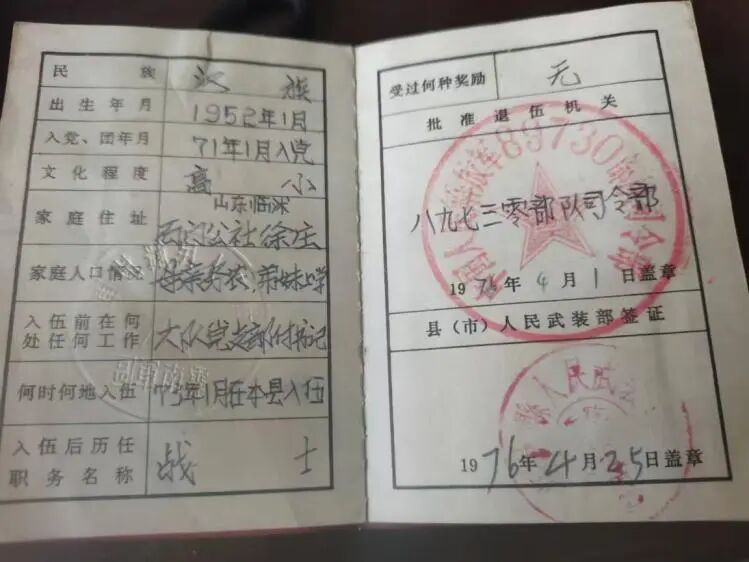 民族 汉族
出生年月 1952年1月
入党、团年月 71年1月入党
文化程度 高小
家庭住址 山东临沭
石门公社徐庄
家庭人口情况 母亲务农,弟妹上学
入伍前在何
处任何工作 大队党支部付书记
何时何地入伍 73年1月在本县入伍
入伍后历任
职务名称 战士
受过何种奖励 无
批准退伍机关
89730
八九七三零部队司令部
1976年4月1日盖章
县(市)人民武装部签证
县人民武
1976年4月25日盖章